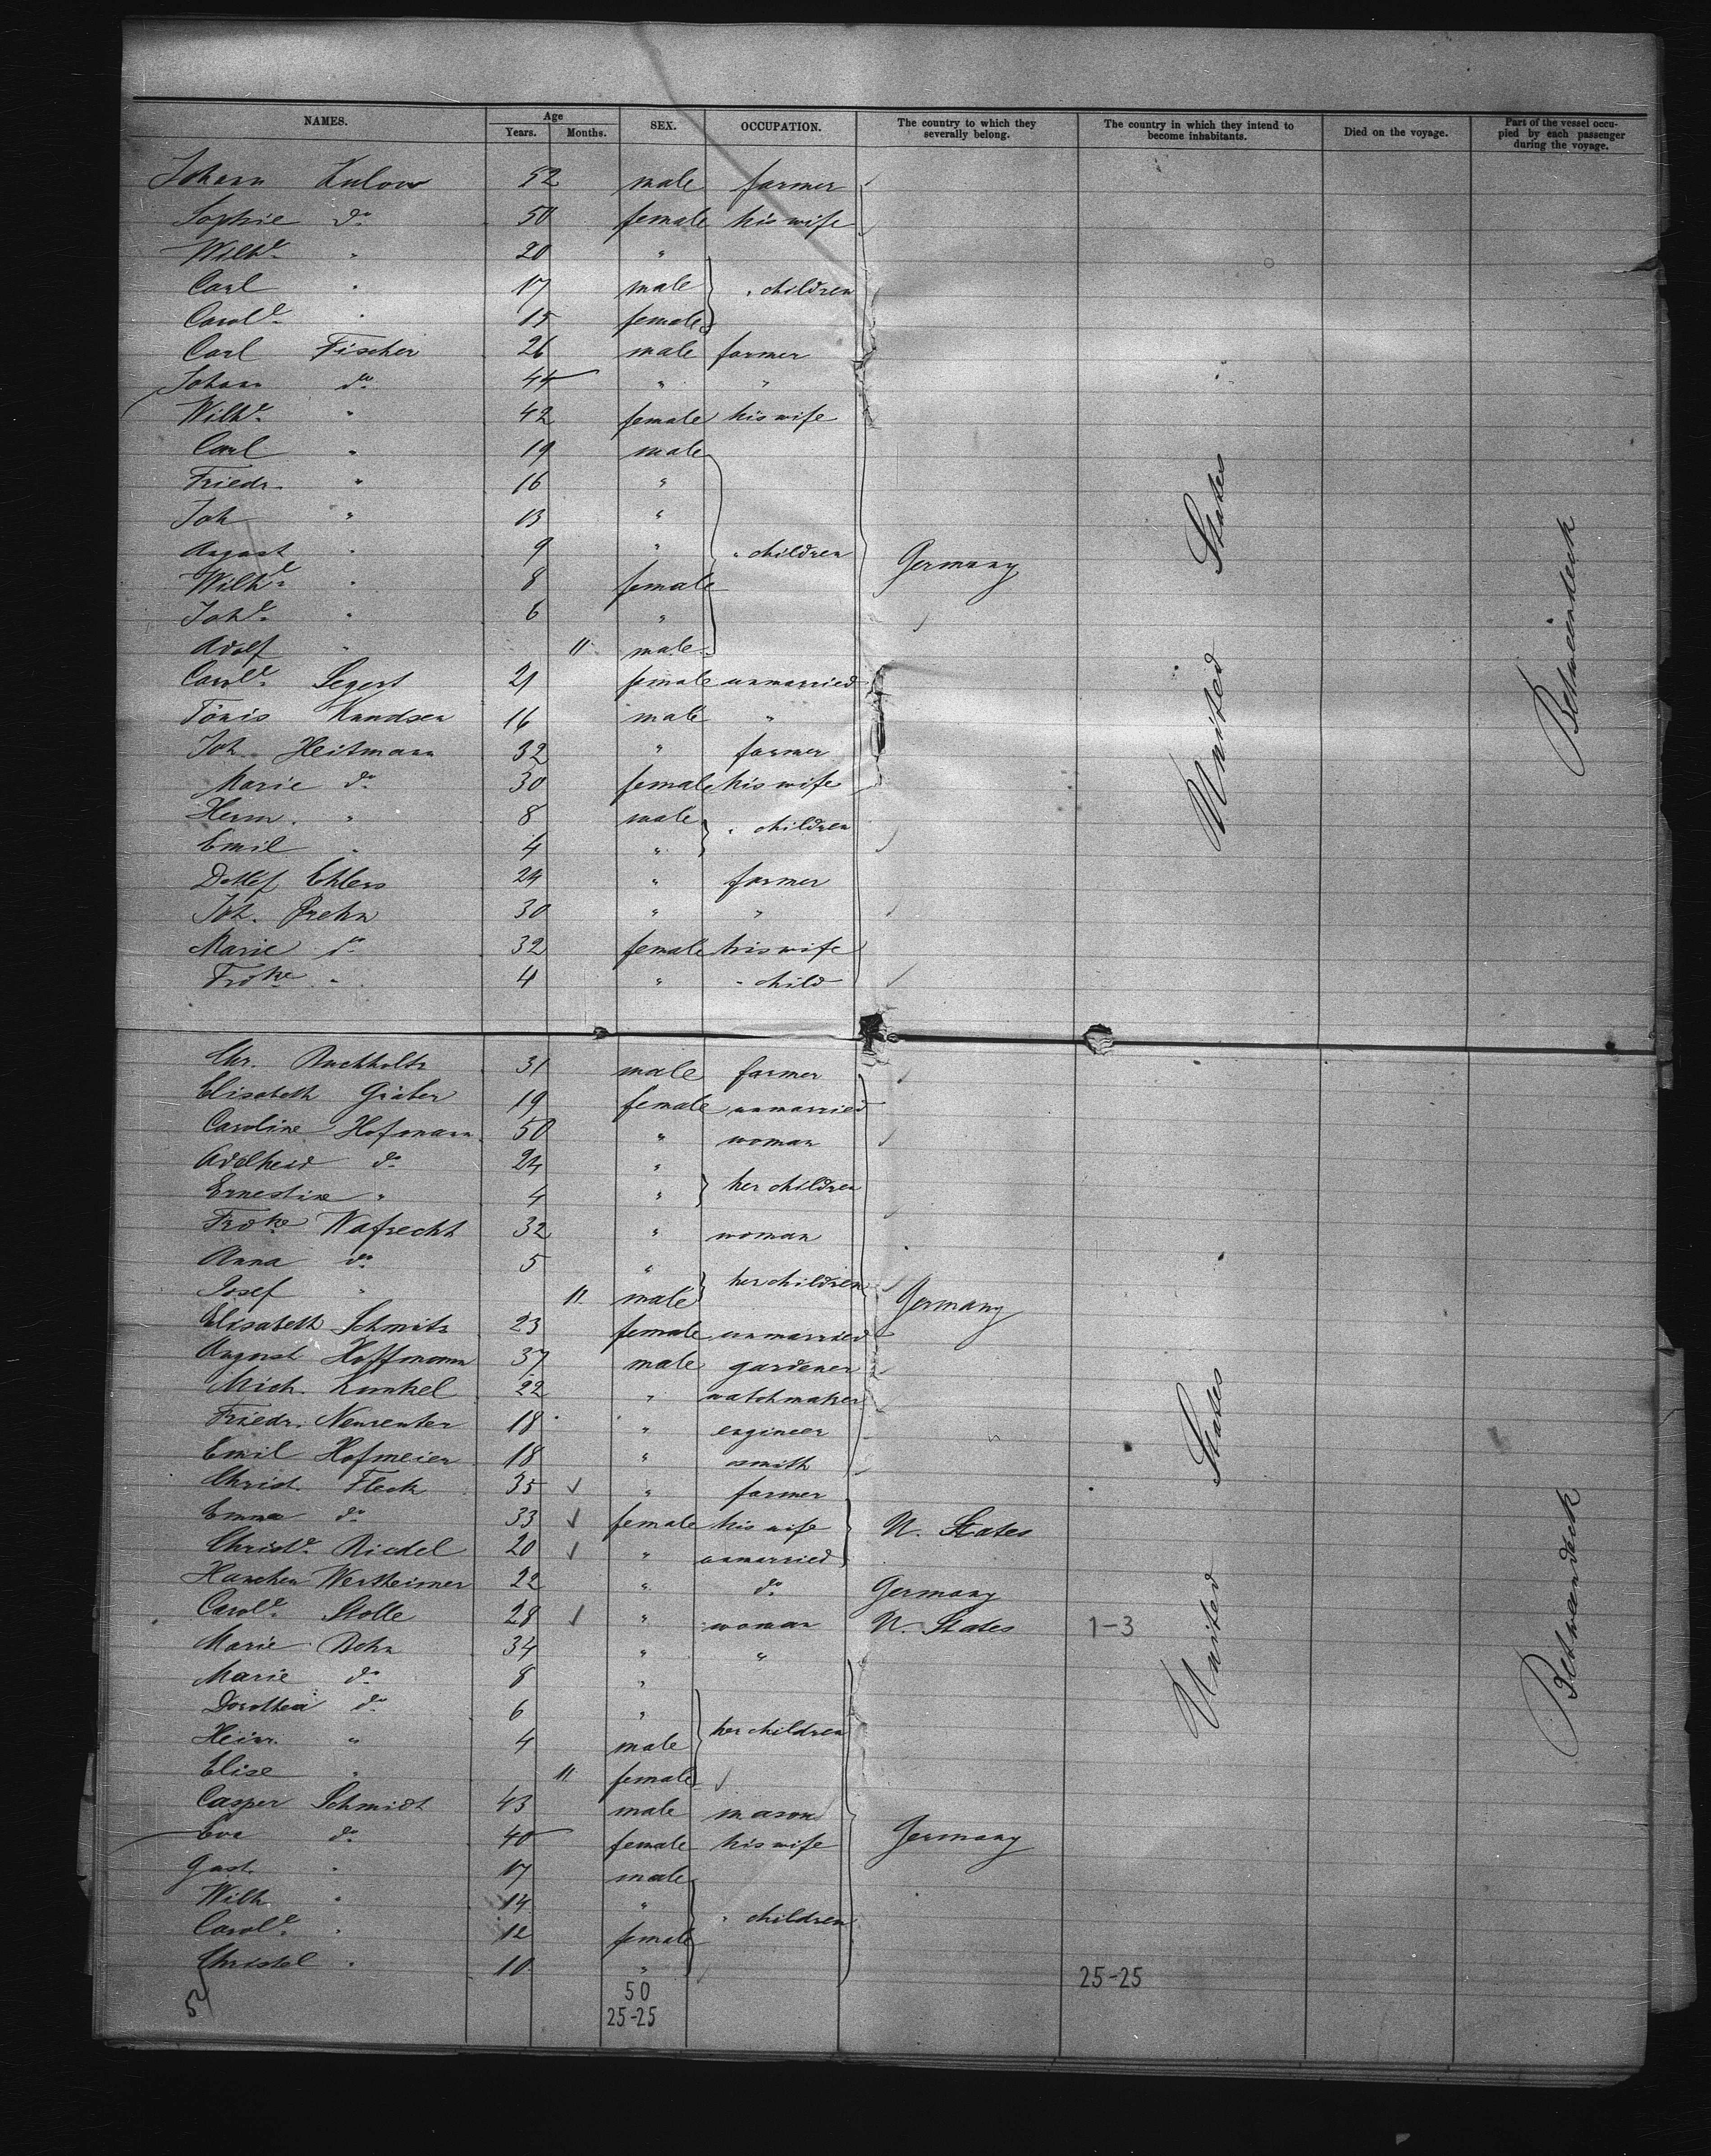 NAMES. Age Years. Months. SEX. OCCUPATION. The country to which they severally belong. The country in which they intend to become inhabitants. Died on the voyage. Part of the vessel occupied by each passenger during the voyage.
Johann Kulow 52 male farmer
Sophie do 50 female his wife
Wilhe " 20 "
Carl " 17 male " children
Carole " 15 female
Carl Fischer 26 male farmer
Johann do 44 " "
Wilhe " 42 female his wife
Carl " 19 male
Friedr. " 16 "
Joh " 13 "
August " 9 " " children Germany
Wilhe " 8 female
Johe " 6 "
Adolf " 11 male
Carole Segert 21 female unmarried
Tönis Knudsen 16 male "
Joh. Heitmann 32 " farmer
Marie do 30 female his wife
Herm. " 8 male " children
Emil " 4 "
Detlef Ehlers 24 " farmer
Joh. Prehn 30 " "
Marie do 32 female his wife
Frdke " 4 " " child
United States
Betweendeck
Chr. Buchholtz 31 male farmer
Elisabeth Gräber 19 female unmarried
Caroline Hofmann 50 " woman
Adelheid do 24 "
Ernestine " 4 " her children
Frdke Wafrecht 32 " woman
Anna do 5 "
Josef " 11 male her children Germany
Elisabeth Schmitz 23 female unmarried
August Hoffmann 37 male gardener
Mich. Kunkel 22 " watchmaker
Friedr. Neureuter 18 " engineer
Emil Hofmeier 18 " smith
Christ. Fleck 35 " farmer
Emma do 33 female his wife U. States
Christe Riedel 20 " unmarried
Hanchen Wertheimer 22 " do Germany
Carole Stolle 28 " woman U. States 1-3
Marie Bohn 34 " "
Marie do 8 "
Dorothea do 6 "
Heinr. " 4 male her children
Elise " 11 female
Casper Schmidt 43 male mason
Eva do 40 female his wife Germany
Gust. " 17 male
Wilh " 14 "
Carole " 12 female " children
Christel " 10 "
United States
Betweendeck
50
25-25
25-25